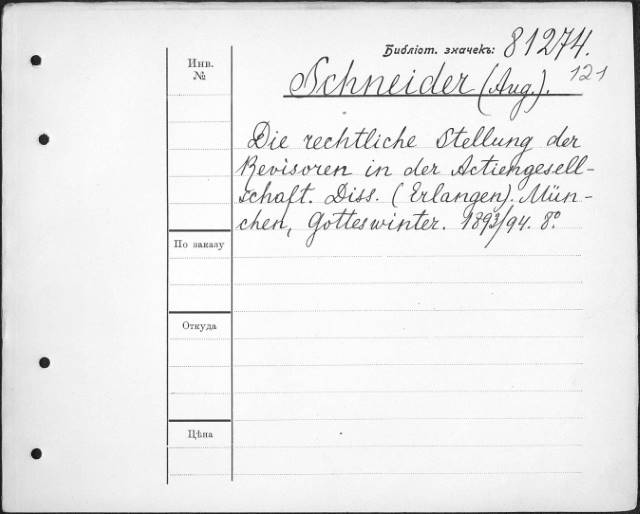 Библіот. значекъ: 81274.
121
Инв.
№
Schneider (Aug.).
Die rechtliche Stellung der
Revisoren in der Actiengesell-
schaft. Diss. (Erlangen). Mün-
chen, Gotteswinter. 1893/94. 8°.
По заказу
Откуда
Цѣна